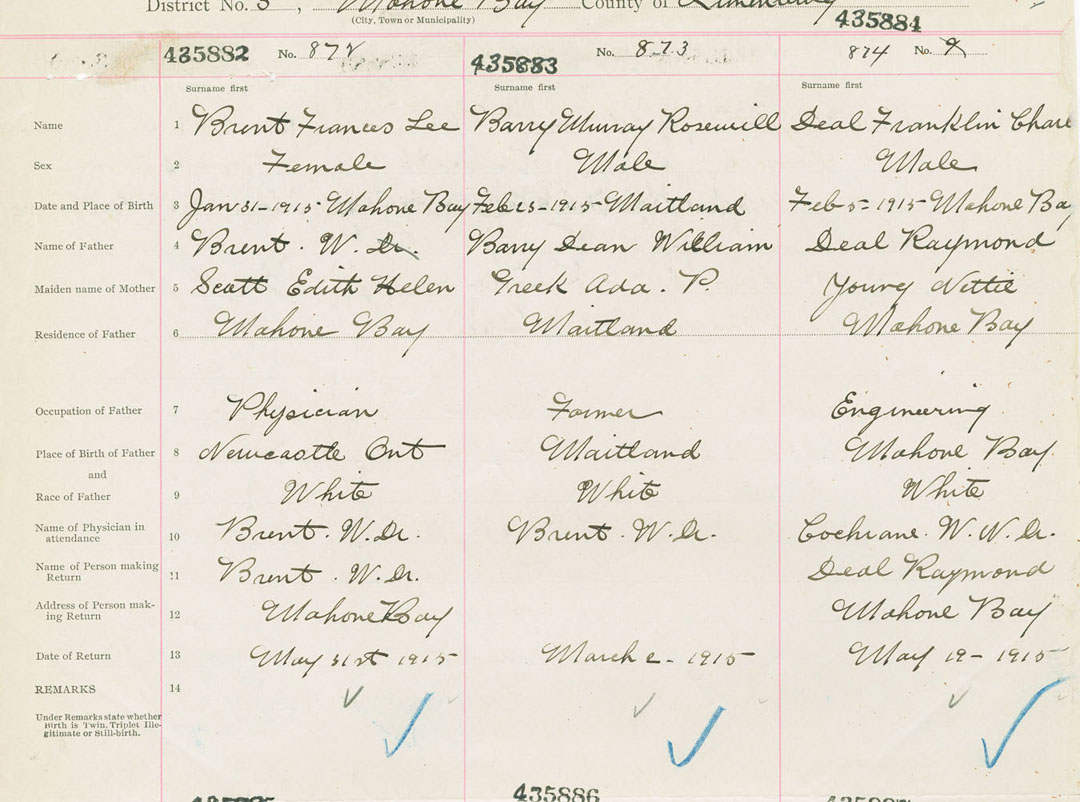 District No. 5, Mahone Bay County of Lunenburg
(City, Town or Municipality)
435884
435882 No. 872 435883 No. 873 874 No. 9
Surname first Surname first Surname first
Name 1 Brent Frances Lee Barry Murray Rosewill Deal Franklin Charl
Sex 2 Female Male Male
Date and Place of Birth 3 Jan 31-1915 Mahone Bay Feb 25-1915-Maitland Feb 5-1915-Mahone Ba
Name of Father 4 Brent. W. Dr. Barry Dean William Deal Raymond
Maiden name of Mother 5 Scott Edith Helen Greek Ada. P. Young Nettie
Residence of Father 6 Mahone Bay Maitland Mahone Bay
Occupation of Father 7 Physician Farmer Engineering
Place of Birth of Father 8 Newcastle Ont Maitland Mahone Bay.
and
Race of Father 9 White White White
Name of Physician in
attendance 10 Brent. W. Dr. Brent. W. Dr. Cochrane. W. W. Dr.
Name of Person making
Return 11 Brent. W. Dr. Deal Raymond
Address of Person mak-
ing Return 12 Mahone Bay Mahone Bay
Date of Return 13 May 31st 1915 March 2-1915 May 19-1915
REMARKS 14
Under Remarks state whether
Birth is Twin, Triplet Ille-
gitimate or Still-birth.
435886